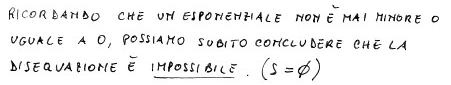 RICORDANDO CHE UN ESPONENZIALE NON È MAI MINORE O
UGUALE A 0, POSSIAMO SUBITO CONCLUDERE CHE LA
DISEQUAZIONE È IMPOSSIBILE. (S = ∅)